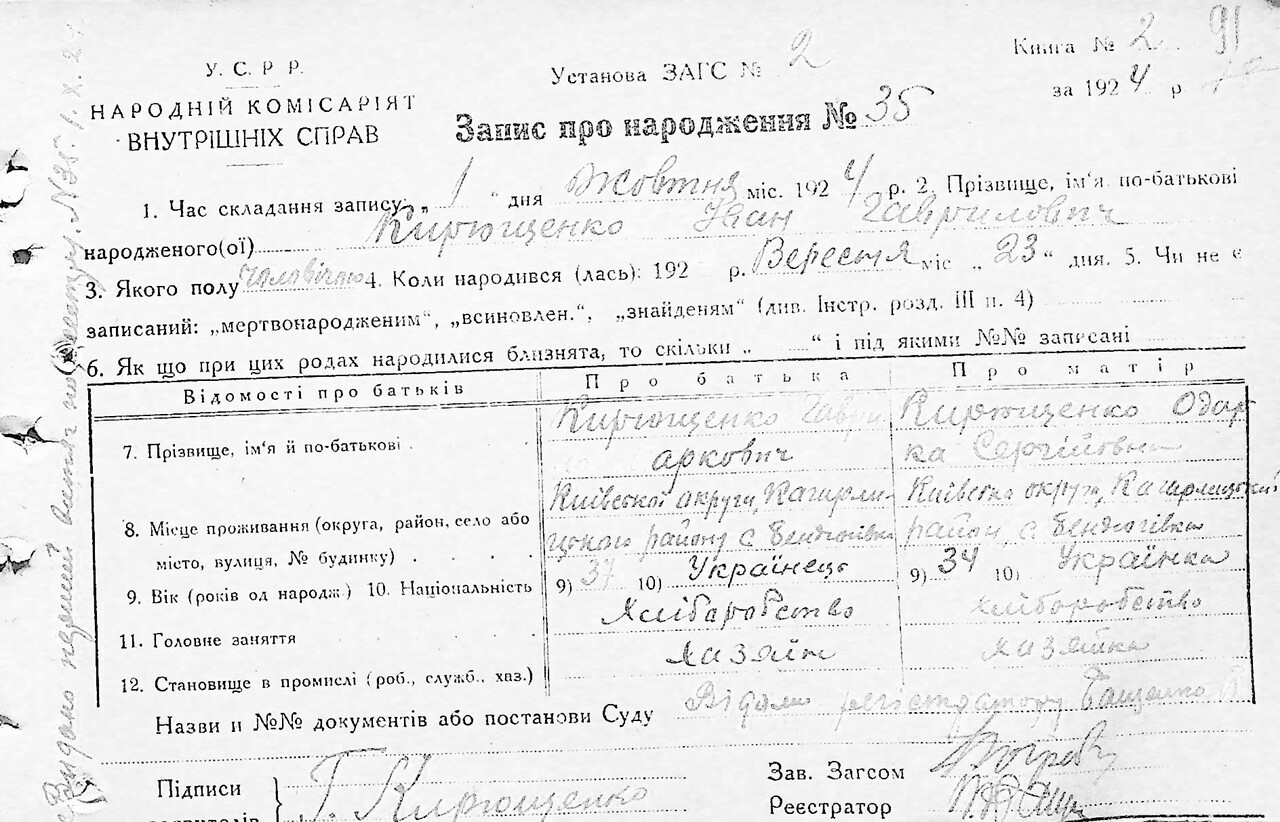 Книга № 2 91
У. С. Р Р.
Установа ЗАГС № 2
за 1924 р
НАРОДНІЙ КОМІСАРІЯТ
ВНУТРІШНІХ СПРАВ
Запис про народження № 35
1. Час складання запису: „ 1 " дня Жовтня міс. 1924 р. 2. Прізвище, ім'я по-батькові
народженого(ої) Кирющенко Іван Гаврилович
3. Якого полу чоловічого 4. Коли народився (лась): 192 р. Вересня міс „ 23 " дня. 5. Чи не є
записаний: „мертвонародженим", „всиновлен.", „знайденям" (див. Інстр. розд. III п. 4)
6. Як що при цих родах народилися близнята, то скільки „ " і під якими №№ записані
Відомості про батьків Про батька Про матір
7. Прізвище, ім'я й по-батькові
Кирющенко Гаври
ло аркович
Кирющенко Одар
ка Сергіївна
8. Місце проживання (округа, район, село або
місто, вулиця, № будинку)
Київської округи, Кагарли
цького району с
Київська округа, Кагарлицький
район с. Бендюгівка
9. Вік (років од народж.) 10. Національність 9) 37 10) Українець 9) 34 10) Українка
11. Головне заняття Хліборобство Хліборобство
12. Становище в промислі (роб., служб., хаз.) Хазяїн Хазяйка
Назви и №№ документів або постанови Суду реєстратору
Підписи Г. Кирющенко
Зав. Загсом
Реєстратор
Видано перший витяг по реєстру N35 1.X.24